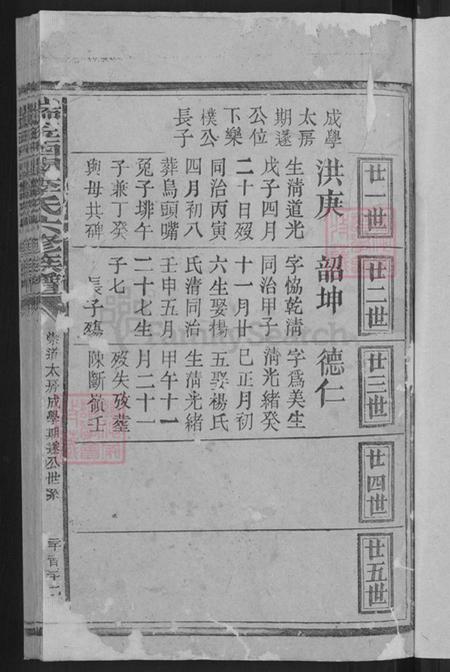 廿一世
廿二世
廿三世
廿四世
廿五世
成學
太房
期遂
公位
下樂
樸公
長子
洪庚
生清道光
戊子四月
二十日歿
同治丙寅
四月初八
葬烏頭嘴
兔子排午
子兼丁癸
與母共碑
韶坤
字恊乾清
同治甲子
十一月廿
六生娶楊
氏清同治
壬申五月
二十七生
子七
長子殤
德仁
字爲美生
清光緒癸
巳正月初
五娶楊氏
生清光緒
甲午十一
月二十一
歿失攷葬
陳斷嶺壬
李氏六修族譜
崇道太房成學期遂公世系